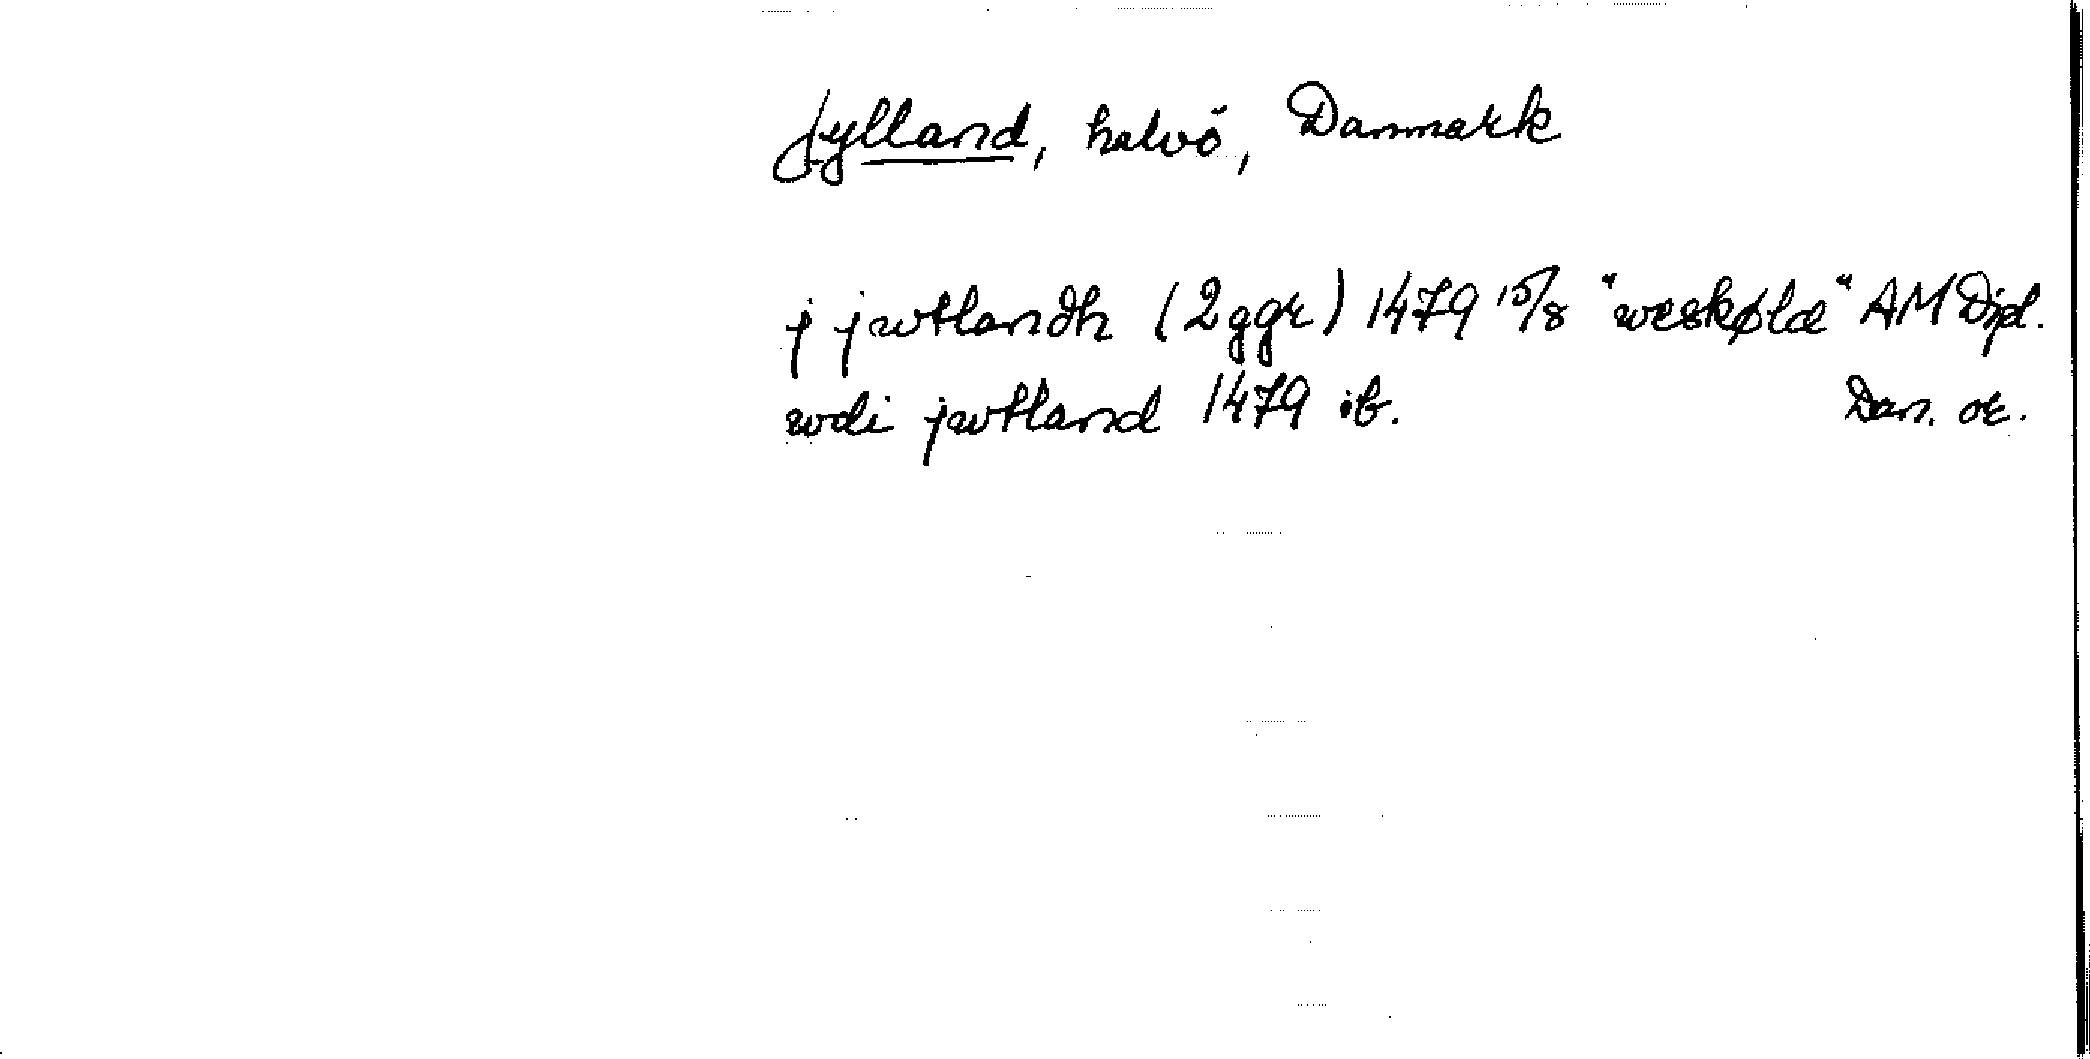 Jylland, halvö, Danmark
j jwtlandh (2ggr) 1479 15/8 "weskøld" AM Dipl.
wdi jwtland 1479 ib. Dan. or.